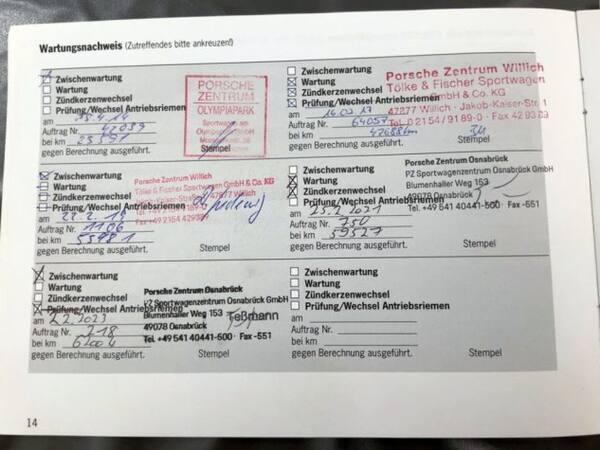 Wartungsnachweis (Zutreffendes bitte ankreuzen!)
Zwischenwartung
Wartung
Zündkerzenwechsel
Prüfung/Wechsel Antriebsriemen
am
Auftrag Nr. 47039
bei km
gegen Berechnung ausgeführt. Stempel
PORSCHE
ZENTRUM
OLYMPIAPARK
Zwischenwartung
Wartung
Zündkerzenwechsel
Prüfung/Wechsel Antriebsriemen
am 16.03.17
Auftrag Nr. 64057
bei km
gegen Berechnung ausgeführt. Stempel
Porsche Zentrum Willich
Tölke & Fischer Sportwagen
GmbH & Co. KG
47877 Willich · Jakob-Kaiser-Str. 1
Tel. 0 2154 / 9189-0 · Fax 42 9329
Zwischenwartung
Wartung
Zündkerzenwechsel
Prüfung/Wechsel Antriebsriemen
am
Auftrag Nr. 1106
bei km 53981
gegen Berechnung ausgeführt. Stempel
Porsche Zentrum Willich
Tölke & Fischer Sportwagen GmbH & Co. KG
Zwischenwartung
Wartung
Zündkerzenwechsel
Prüfung/Wechsel Antriebsriemen
am 25.2.2021
Auftrag Nr. 750
bei km 59527
gegen Berechnung ausgeführt. Stempel
Porsche Zentrum Osnabrück
PZ Sportwagenzentrum Osnabrück GmbH
Blumenhaller Weg 153
49078 Osnabrück
Tel. +49 541 40441-500 · Fax -551
Zwischenwartung
Wartung
Zündkerzenwechsel
Prüfung/Wechsel Antriebsriemen
am 2.2.2023
Auftrag Nr. 218
bei km 62004
gegen Berechnung ausgeführt. Stempel
Porsche Zentrum Osnabrück
PZ Sportwagenzentrum Osnabrück GmbH
Blumenhaller Weg 153 Teßmann
49078 Osnabrück
Tel. +49 541 40441-500 · Fax -551
Zwischenwartung
Wartung
Zündkerzenwechsel
Prüfung/Wechsel Antriebsriemen
am
Auftrag Nr.
bei km
gegen Berechnung ausgeführt. Stempel
14